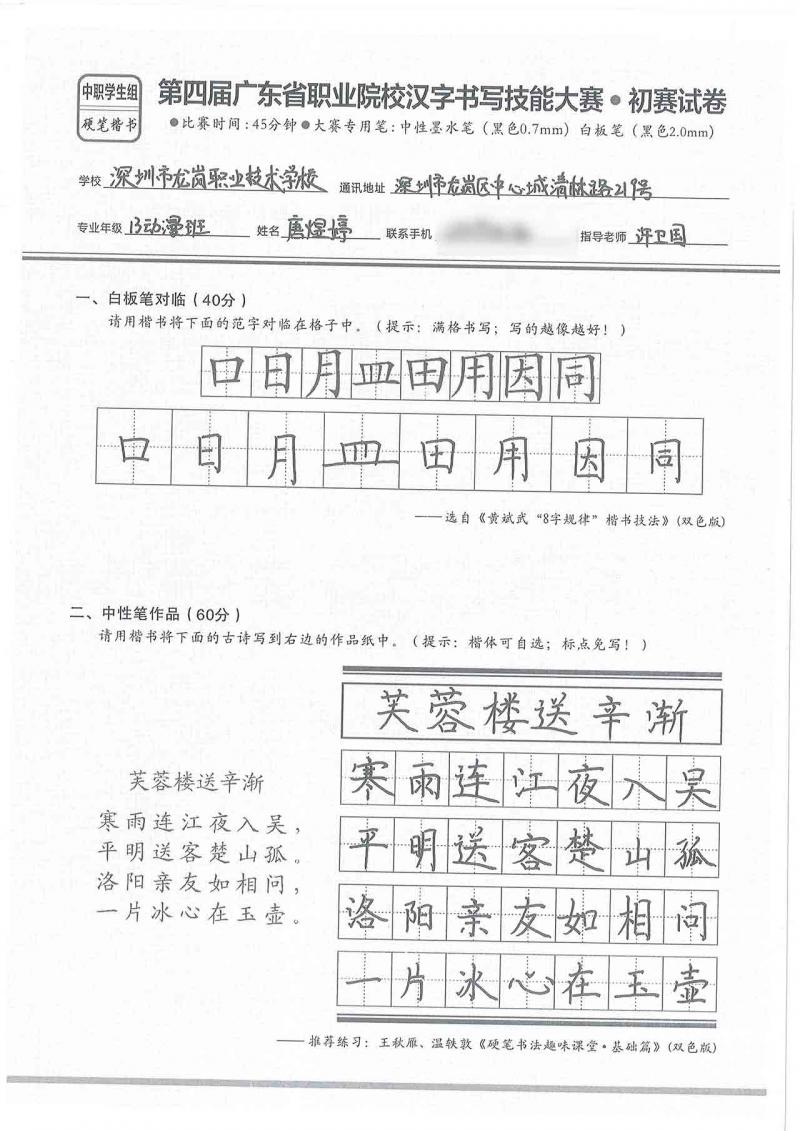 中职学生组
硬笔楷书
第四届广东省职业院校汉字书写技能大赛●初赛试卷
●比赛时间:45分钟●大赛专用笔:中性墨水笔(黑色0.7mm)白板笔(黑色2.0mm)
学校 深圳市龙岗职业技术学校 通讯地址 深圳市龙岗区中心城清林路219号
专业年级 13动漫班 姓名 唐煜婷 联系手机 指导老师 许卫国
一、白板笔对临(40分)
请用楷书将下面的范字对临在格子中。(提示:满格书写;写的越像越好!)
口日月皿田用因同
口日月皿田用因同
——选自《黄斌武“8字规律”楷书技法》(双色版)
二、中性笔作品(60分)
请用楷书将下面的古诗写到右边的作品纸中。(提示:楷体可自选;标点免写!)
芙蓉楼送辛渐
寒雨连江夜入吴,
平明送客楚山孤。
洛阳亲友如相问,
一片冰心在玉壶。
芙蓉楼送辛渐
寒雨连江夜入吴
平明送客楚山孤
洛阳亲友如相问
一片冰心在玉壶
——推荐练习:王秋雁、温轶敦《硬笔书法趣味课堂·基础篇》(双色版)